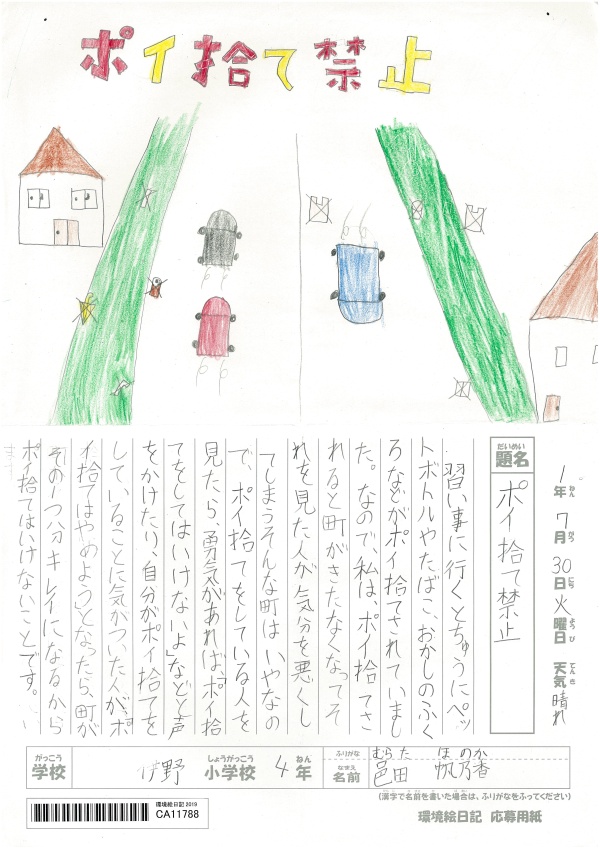 ポイ捨て禁止
1年7月30日火曜日 天気晴れ
ねん がつ にち ようび てんき
だいめい
題名
ポイ捨て禁止
習い事に行くとちゅうにペッ
トボトルやたばこ、おかしのふく
ろなどがポイ捨てされていまし
た。なので、私は、ポイ捨てさ
れると町がきたなくなってそ
れを見た人が気分を悪くし
てしまうそんな町はいやなの
で、ポイ捨てをしている人を
見たら、勇気があれば、「ポイ捨
てをしてはいけないよ」などと声
をかけたり、自分がポイ捨てを
していることに気がついた人が、「ポ
イ捨てはやめよう」となったら、町が
その1つ分キレイになるから
ポイ捨てはいけないことです。
がっこう しょうがっこう ねん
学校 伊野 小学校 4年
ふりがな むらた ほのか
なまえ
名前 邑田 帆乃香
(漢字で名前を書いた場合は、ふりがなをふってください)
環境絵日記 2019
CA11788
環境絵日記 応募用紙